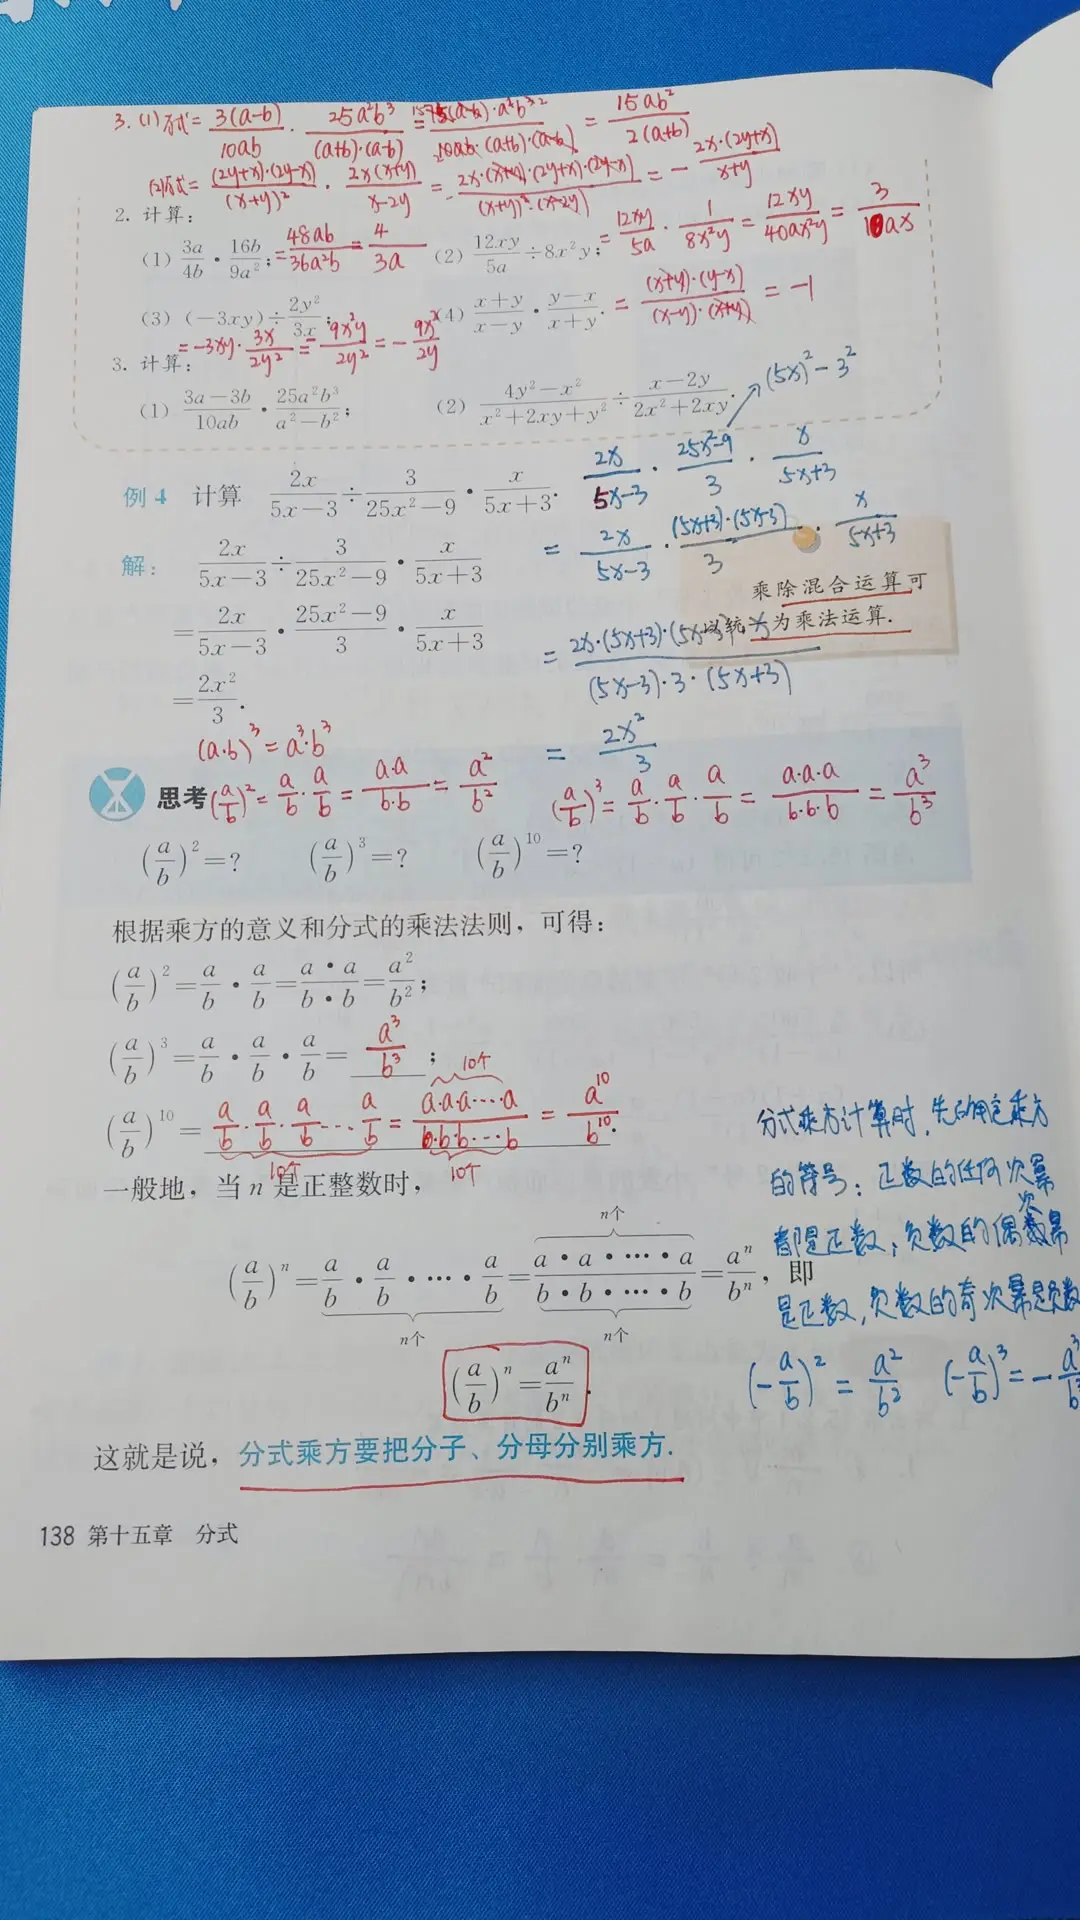 3.(1)原式=3(a-b)/10ab · 25a²b³/(a+b)·(a-b) = 75(a-b)·a²b³/10ab·(a+b)·(a-b) = 15ab²/2(a+b)
(2)原式=(2y+x)·(2y-x)/(x+y)² · 2x(x+y)/x-2y = 2x·(x+y)·(2y+x)·(2y-x)/(x+y)²·(x-2y) = -2x·(2y+x)/x+y
2. 计算:
(1) 3a/4b · 16b/9a²; =48ab/36a²b=4/3a (2) 12xy/5a ÷8x²y; =12xy/5a · 1/8x²y = 12xy/40ax²y = 3/10ax
(3) (-3xy)÷2y²/3x; (4) x+y/x-y · y-x/x+y. = (x+y)·(y-x)/(x-y)·(x+y) = -1
=-3xy·3x/2y²=-9x²y/2y²=-9x²/2y
3. 计算:
(1) 3a-3b/10ab · 25a²b³/a²-b²; (2) 4y²-x²/x²+2xy+y² ÷ x-2y/2x²+2xy. (5x)²-3²
例 4 计算 2x/5x-3 ÷ 3/25x²-9 · x/5x+3. 2x/5x-3 · 25x²-9/3 · x/5x+3
解: 2x/5x-3 ÷ 3/25x²-9 · x/5x+3 = 2x/5x-3 · (5x+3)·(5x-3)/3 · x/5x+3
乘除混合运算可
以统一为乘法运算.
=2x/5x-3 · 25x²-9/3 · x/5x+3 = 2x·(5x+3)·(5x-3)·x/(5x-3)·3·(5x+3)
=2x²/3. = 2x²/3
(a·b)³=a³·b³
思考 (a/b)²=a/b·a/b=a·a/b·b=a²/b² (a/b)³=a/b·a/b·a/b=a·a·a/b·b·b=a³/b³
(a/b)²=? (a/b)³=? (a/b)¹⁰=?
根据乘方的意义和分式的乘法法则，可得：
(a/b)²=a/b·a/b=a·a/b·b=a²/b²;
(a/b)³=a/b·a/b·a/b=a³/b³;
(a/b)¹⁰=a/b·a/b·a/b···a/b=a·a·a····a/b·b·b···b=a¹⁰/b¹⁰.
10个 10个 10个
一般地，当 n 是正整数时，
n个
(a/b)ⁿ=a/b·a/b·…·a/b=a·a·…·a/b·b·…·b=aⁿ/bⁿ, 即
n个 n个
(a/b)ⁿ=aⁿ/bⁿ.
这就是说，分式乘方要把分子、分母分别乘方.
分式乘方计算时，先确定乘方
的符号：正数的任何次幂
都是正数，负数的偶次幂
是正数，负数的奇次幂是负数
(-a/b)²=a²/b² (-a/b)³=-a³/b³
138 第十五章 分式